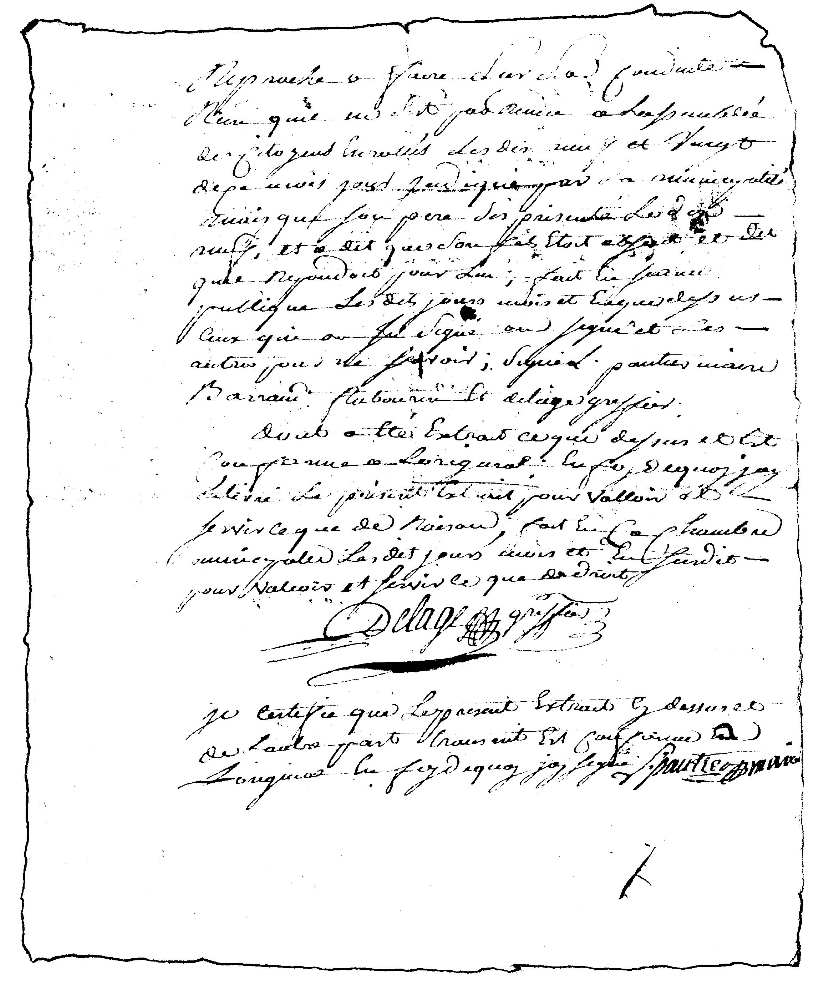 Reproche a faire sur sa conduite
qu'il ne s'est pas rendu a Lassemblée
des Citoyens Enrollés Les dix neuf et Vingt
de ce mois jour indiqué par la municipalité
mais que son pere s'es présenté Le dix
neuf, et a dit que son fils Etoit absent et dit
quil Repondoit pour Lui; fait En seance
publique Lesdits jours mois et an que dessus
Ceux qui on su signé ont signé et Les
autres pour ne savoir; signé pautier maire
Barraud et delage greffier.
a Eté Extrait ce que dessus et Est
Conforme a Loriginal En foy dequoy jay
délivré Le présent Extrait pour Valloir et
servir ce que de Raison, fait En La Chambre
municipalle Lesdit jours mois et En susdit
pour Valoir et servir ce que de droit
Delage greffier
je certifie que Le present Extrait cy dessus et
de Lautre part Est Conforme a
Loriginal En foy dequoy jay signé pautier maire